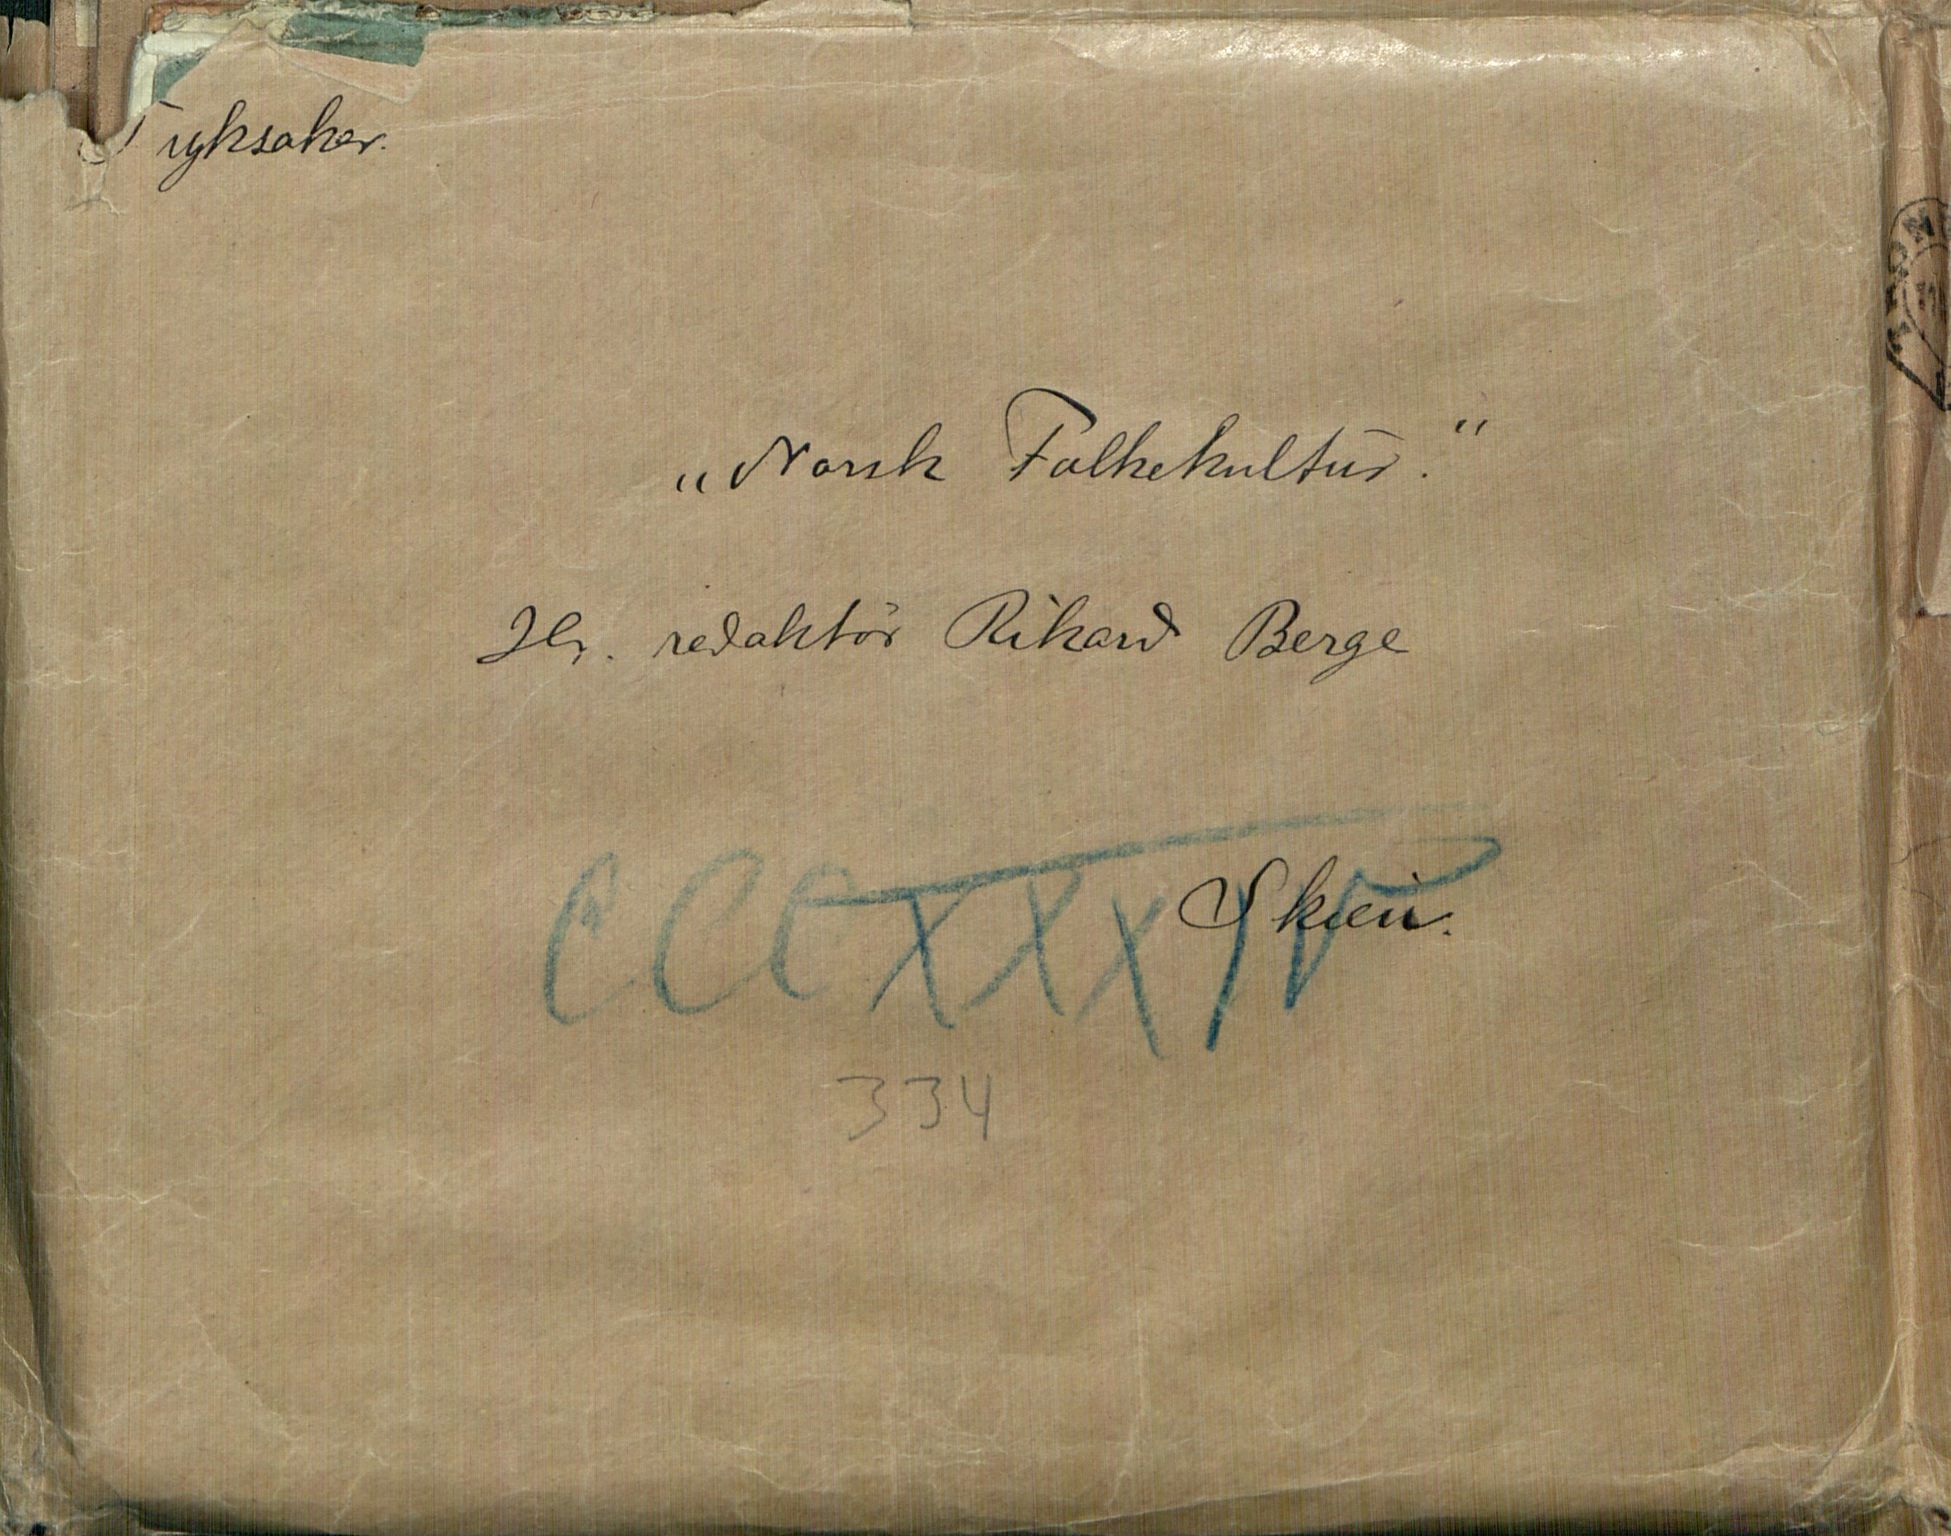 Tryksaker.
„Norsk Folkekultur."
Hr. redaktör Rikard Berge
Skien.
CCCXXXIV
334